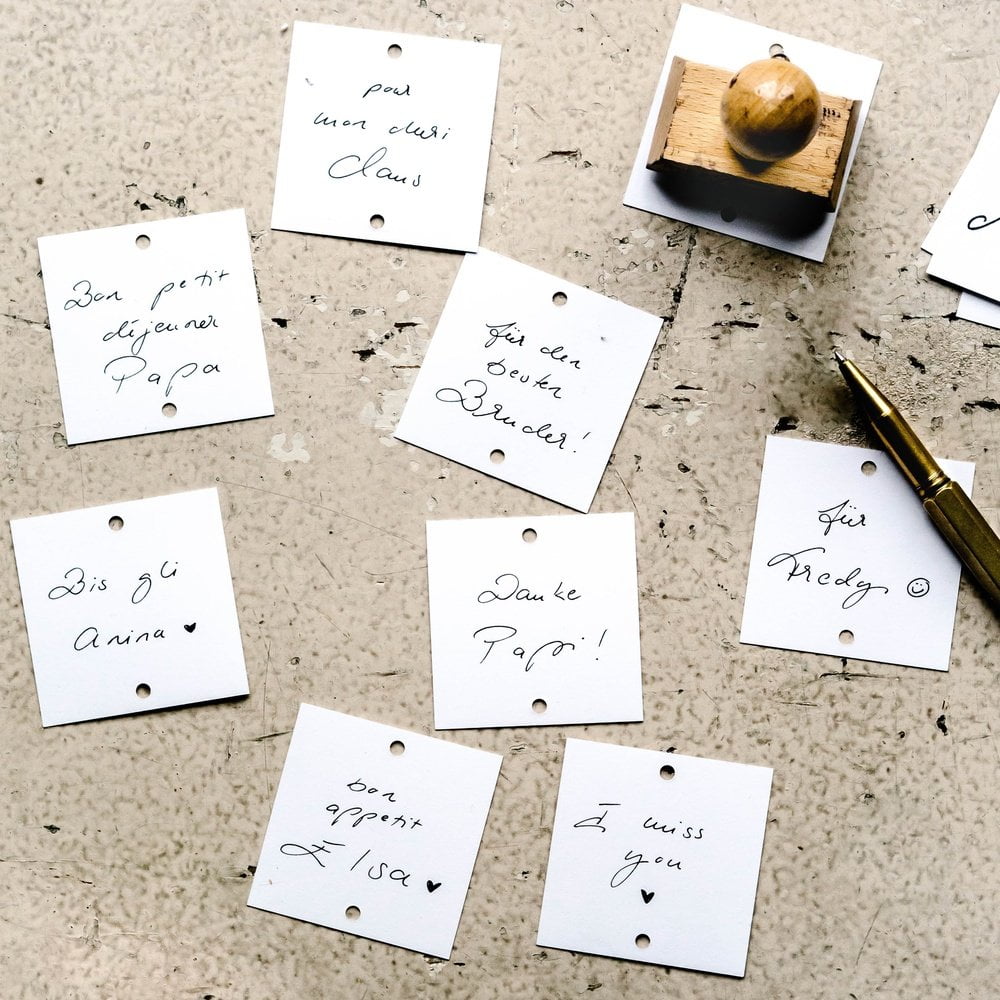 pour
mon cheri
Claus
Bon petit
déjeuner
Papa
für den
besten
Bruder!
für
Fredy ☺
Bis gli
Anina ♥
Danke
Papi!
bon
appetit
Elsa ♥
I miss
you
♥